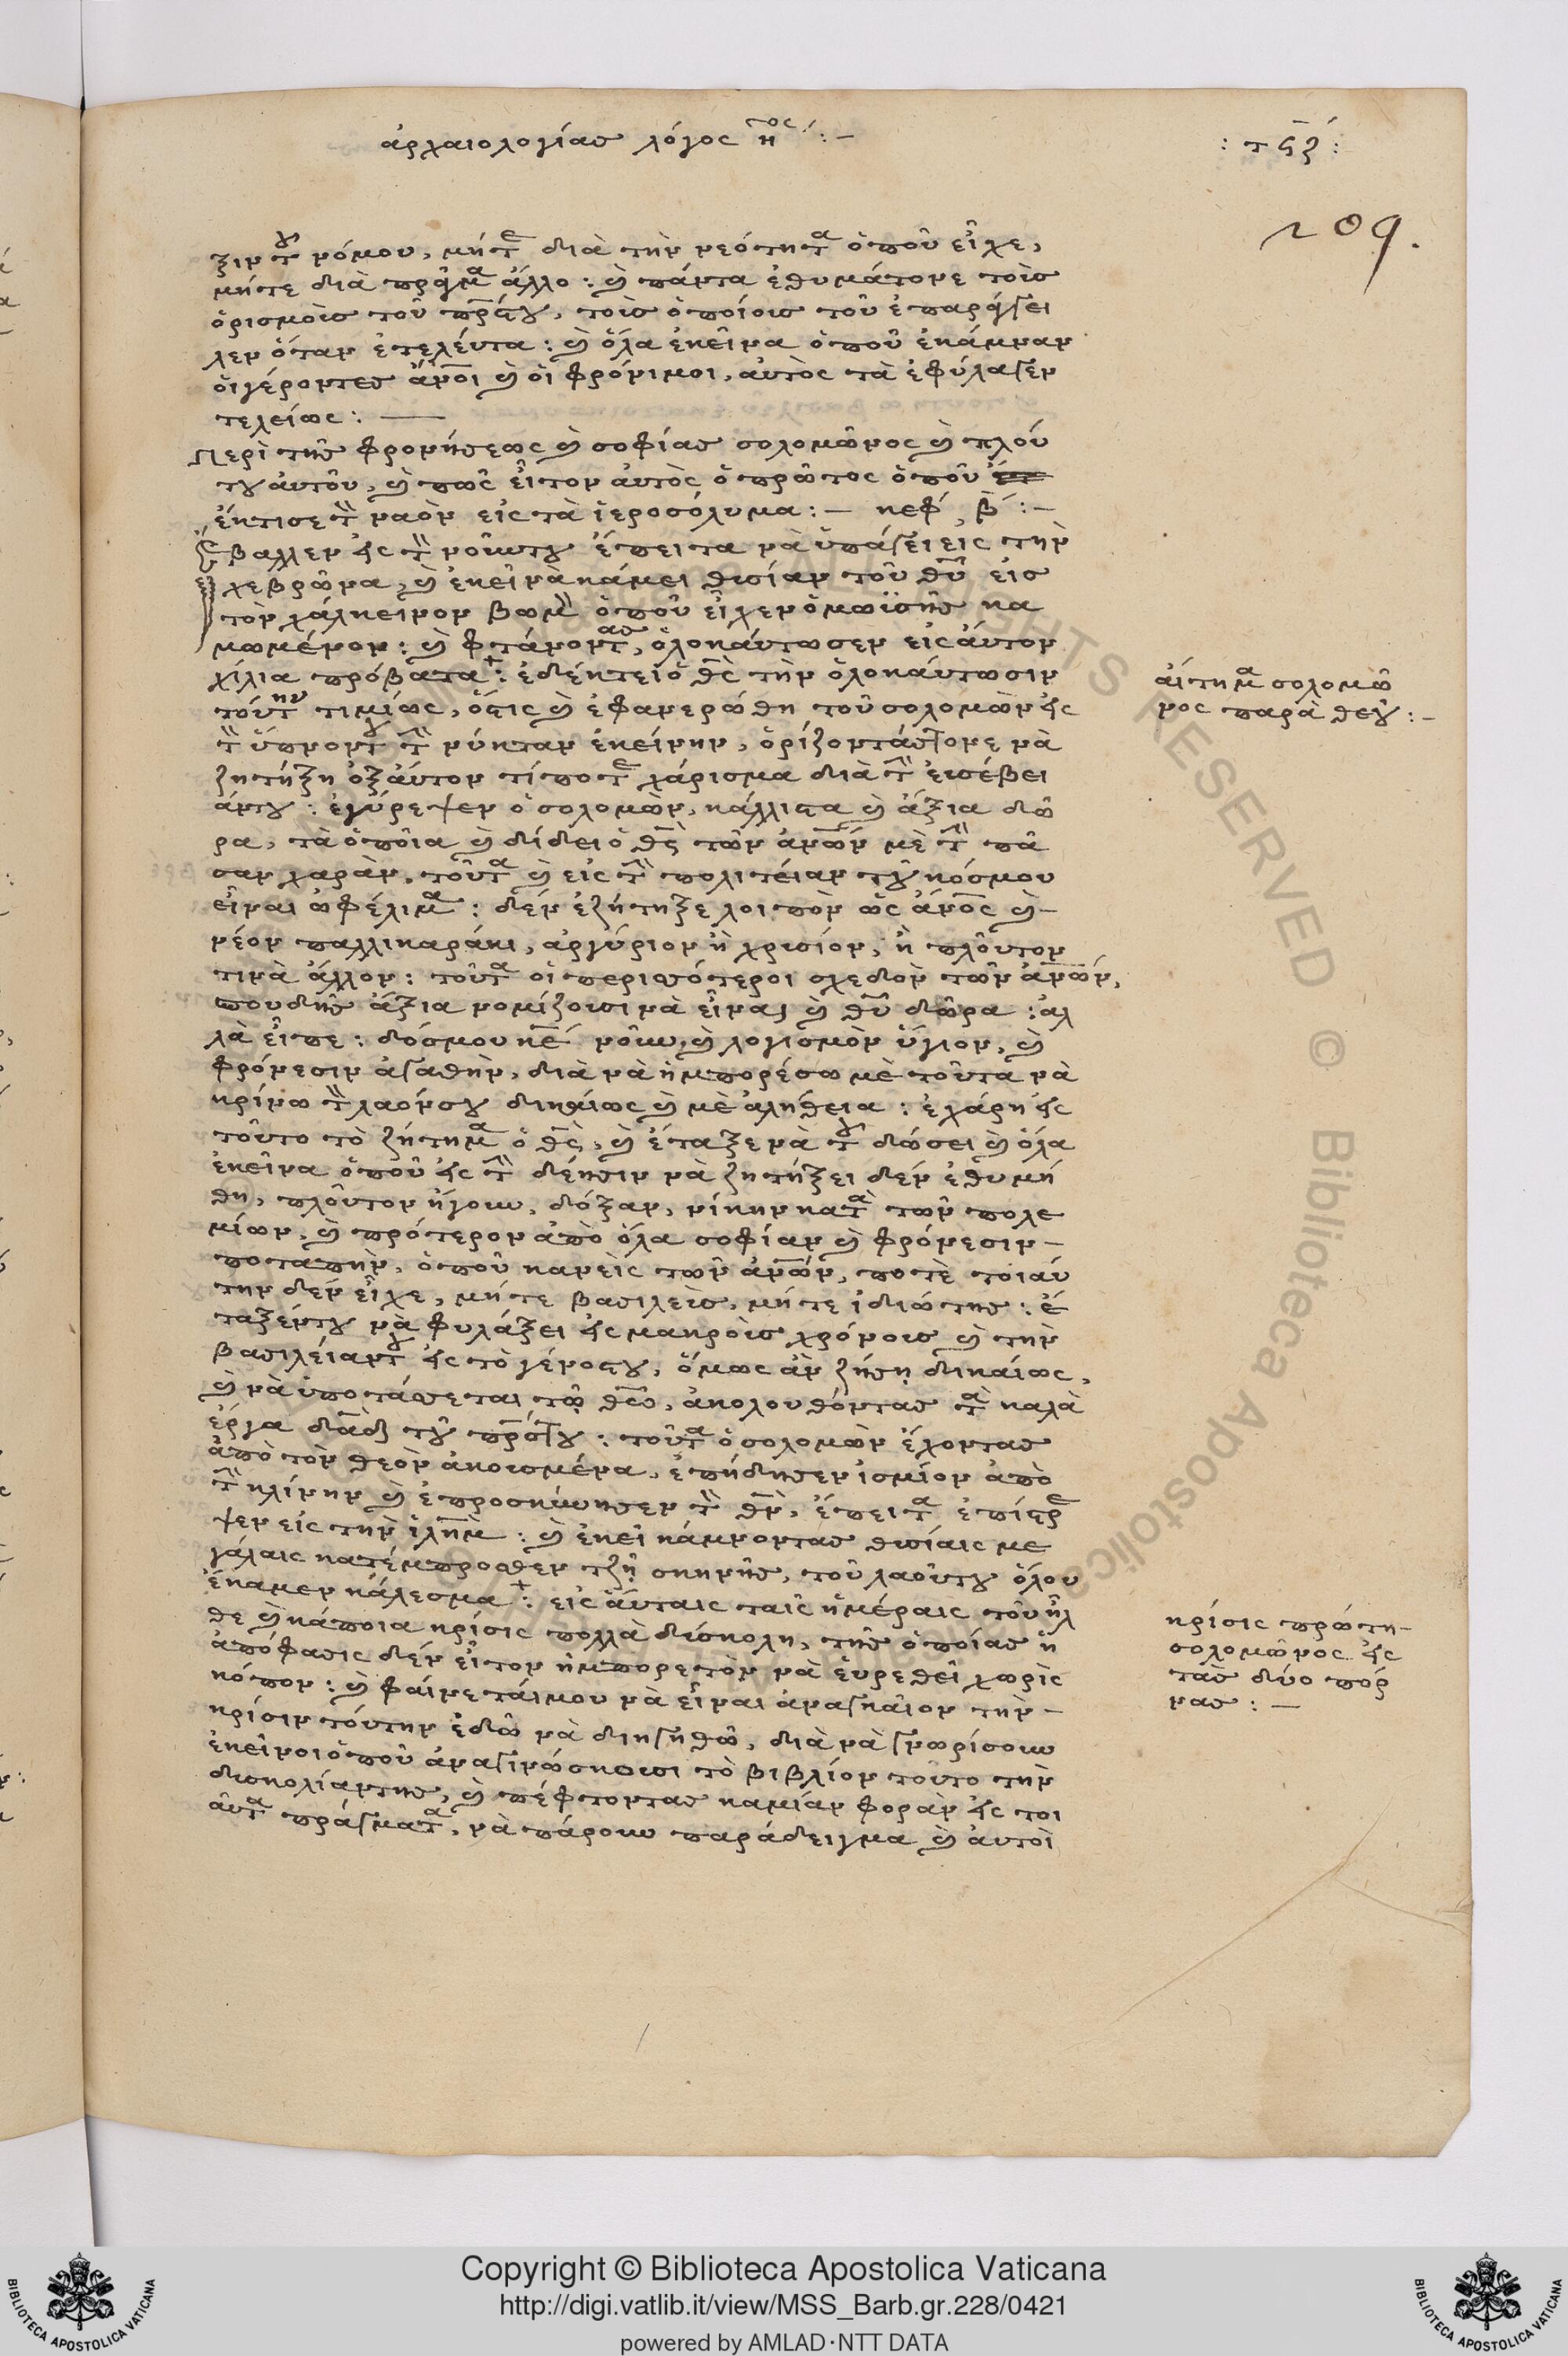 ἀρχαιολογίας λόγος η ος :—
: τϟζ :
209.
ξιν τ νόμου, μήτε διὰ τὴν νεότητα ὁποῦ εἶχε,
μήτε διὰ πρᾶγμα ἄλλο : καὶ πάντα ἐθυμάτονε τοῖς
ὁρισμοῖς τοῦ πρς του, τοῖς ὁποίοις τοῦ ἐπαράγγει
λεν ὅταν ἐτελεύτα : καὶ ὅλα ἐκεῖνα ὁποῦ ἐκάμναν
οἱ γέροντες ἄνοι καὶ οἱ φρόνιμοι, αὐτὸς τὰ ἐφύλαγεν
τελείως : —
Περὶ τῆς φρονήσεως καὶ σοφίας σολομῶνος καὶ πλού
του αὐτοῦ, καὶ πῶς εἶτον αὐτὸς ὁ πρῶτος ὁποῦ
ἔκτισε τ ναὸν εἰς τὰ ἱεροσόλυμα : — κεφ β :—
βαλλεν εἰς τ νοῦν του ἔπειτα νὰ ὑπάγει εἰς τὴν
χεβρῶνα, καὶ ἐκεῖ νὰ κάμει θυσίαν τοῦ θυ εἰς
τὸν χάλκεινον βωμὸν ὁποῦ εἶχεν ὁ μωϋσῆς κα
μωμένον : καὶ φτάνοντας, ὁλοκαύτωσεν εἰς αὐτον
χίλια πρόβατα : ἐδέκτει ὁ θς τὴν ὁλοκαύτωσιν
τούτην τιμίως, ὅστις καὶ ἐφανερώθη τοῦ σολομὼν εἰς
τ ὕπνον του τ νύκταν ἐκείνην, ὁρίζοντάς τονε νὰ
ζητήξη ὀξ αὐτον τίποτε χάρισμα διὰ τ εὐσέβει
άν του : ἐγύρεψεν ὁ σολομὼν, κάλλιστα καὶ ἄξια δῶ
ρα, τὰ ὁποῖα καὶ δίδει ὁ θς τῶν ἀνων μὲ τ πᾶ
σαν χαρὰν, τοῦτα καὶ εἰς τ πολιτείαν τοῦ κόσμου
εἶναι ὠφέλιμα : δὲν ἐζήτηξε λοιπὸν ὡς ἄνος καὶ
νέον παλλικαράκι, ἀργύριον ἢ χρυσίον, ἢ πλοῦτον
τινὰ ἄλλον : τοῦτα οἱ περισσότεροι σχεδὸν τῶν ἀνων,
σπουδῆς ἄξια νομίζουσι νὰ εἶναι καὶ θυ δῶρα : ἀλ
λὰ εἶπε : δόσμου κε νοῦν, καὶ λογισμὸν ὕγιον, καὶ
φρόνεσιν ἀγαθὴν, διὰ νὰ ἠμπορέσω μὲ τοῦτα νὰ
κρίνω τ λαόν σου δικαίως καὶ μὲ ἀλήθεια : ἐχάρη εἰς
τοῦτο τὸ ζήτημα ὁ θς, καὶ ἔταξε νὰ τοῦ δώσει καὶ ὅλα
ἐκεῖνα ὁποῦ εἰς τ δέησιν νὰ ζητήξει δὲν ἐθυμή
θη, πλοῦτον ἤγουν, δόξαν, νίκην κατὰ τῶν πολε
μίων, καὶ πρότερον ἀπὸ ὅλα σοφίαν καὶ φρόνεσιν
ποταπὴν, ὁποῦ κανεὶς τῶν ἀνων, ποτὲ τοιαύ
την δὲν εἶχε, μήτε βασιλεὺς, μήτε ἰδιώτης : ἔ
ταξέν του νὰ φυλάξει εἰς μακροὺς χρόνους καὶ τὴν
βασιλείαν του εἰς τὸ γένος του, ὅμως ἂν ζήσῃ δικαίως,
καὶ νὰ ὑποτάσσεται τῷ θεῷ, ἀκολουθόντας τὰ καλὰ
ἔργα δαδ τοῦ πρς του : τοῦτα ὁ σολομὼν ἔχοντας
ἀπὸ τὸν θεὸν ἀκουσμένα, ἐπήδησεν ἰσμίον ἀπὸ
τ κλίνην καὶ ἐπροσκύνησεν τ θν, ἔπειτα ἐπίστρε
ψεν εἰς τὴν ἱλημ : καὶ ἐκεῖ κάμνοντας θυσίαις με
γάλαις κατέμπροσθεν τζῆ σκηνῆς, τοῦ λαοῦ του ὅλου
ἔκαμεν κάλεσμα : εἰς αὐταις ταῖς ἡμέραις τοῦ ἦλ
θε καὶ κάποια κρίσις πολλὰ δύσκολη, τῆς ὁποίας ἡ
ἀπόφασις δὲν εἶτον ἠμπορετὸν νὰ εὑρεθεῖ χωρὶς
κόπον : καὶ φαίνεταί μου νὰ εἶναι ἀναγκαῖον τὴν
κρίσιν τούτην ἐδῶ νὰ διηγηθῶ, διὰ νὰ γνωρίσουν
ἐκεῖνοι ὁποῦ ἀναγινώσκουσι τὸ βιβλίον τοῦτο τὴν
δυσκολίαν της, καὶ πέφτοντας καμίαν φορὰν εἰς τοι
αῦτα πράγματα, νὰ πάρουν παράδειγμα καὶ αὐτοὶ
αἴτημα σολομῶ
νος παρὰ θεοῦ :—
κρίσις πρώτη
σολομῶνος εἰς
τὰς δύο πόρ
νας : —
Copyright © Biblioteca Apostolica Vaticana
http://digi.vatlib.it/view/MSS_Barb.gr.228/0421
powered by AMLAD·NTT DATA